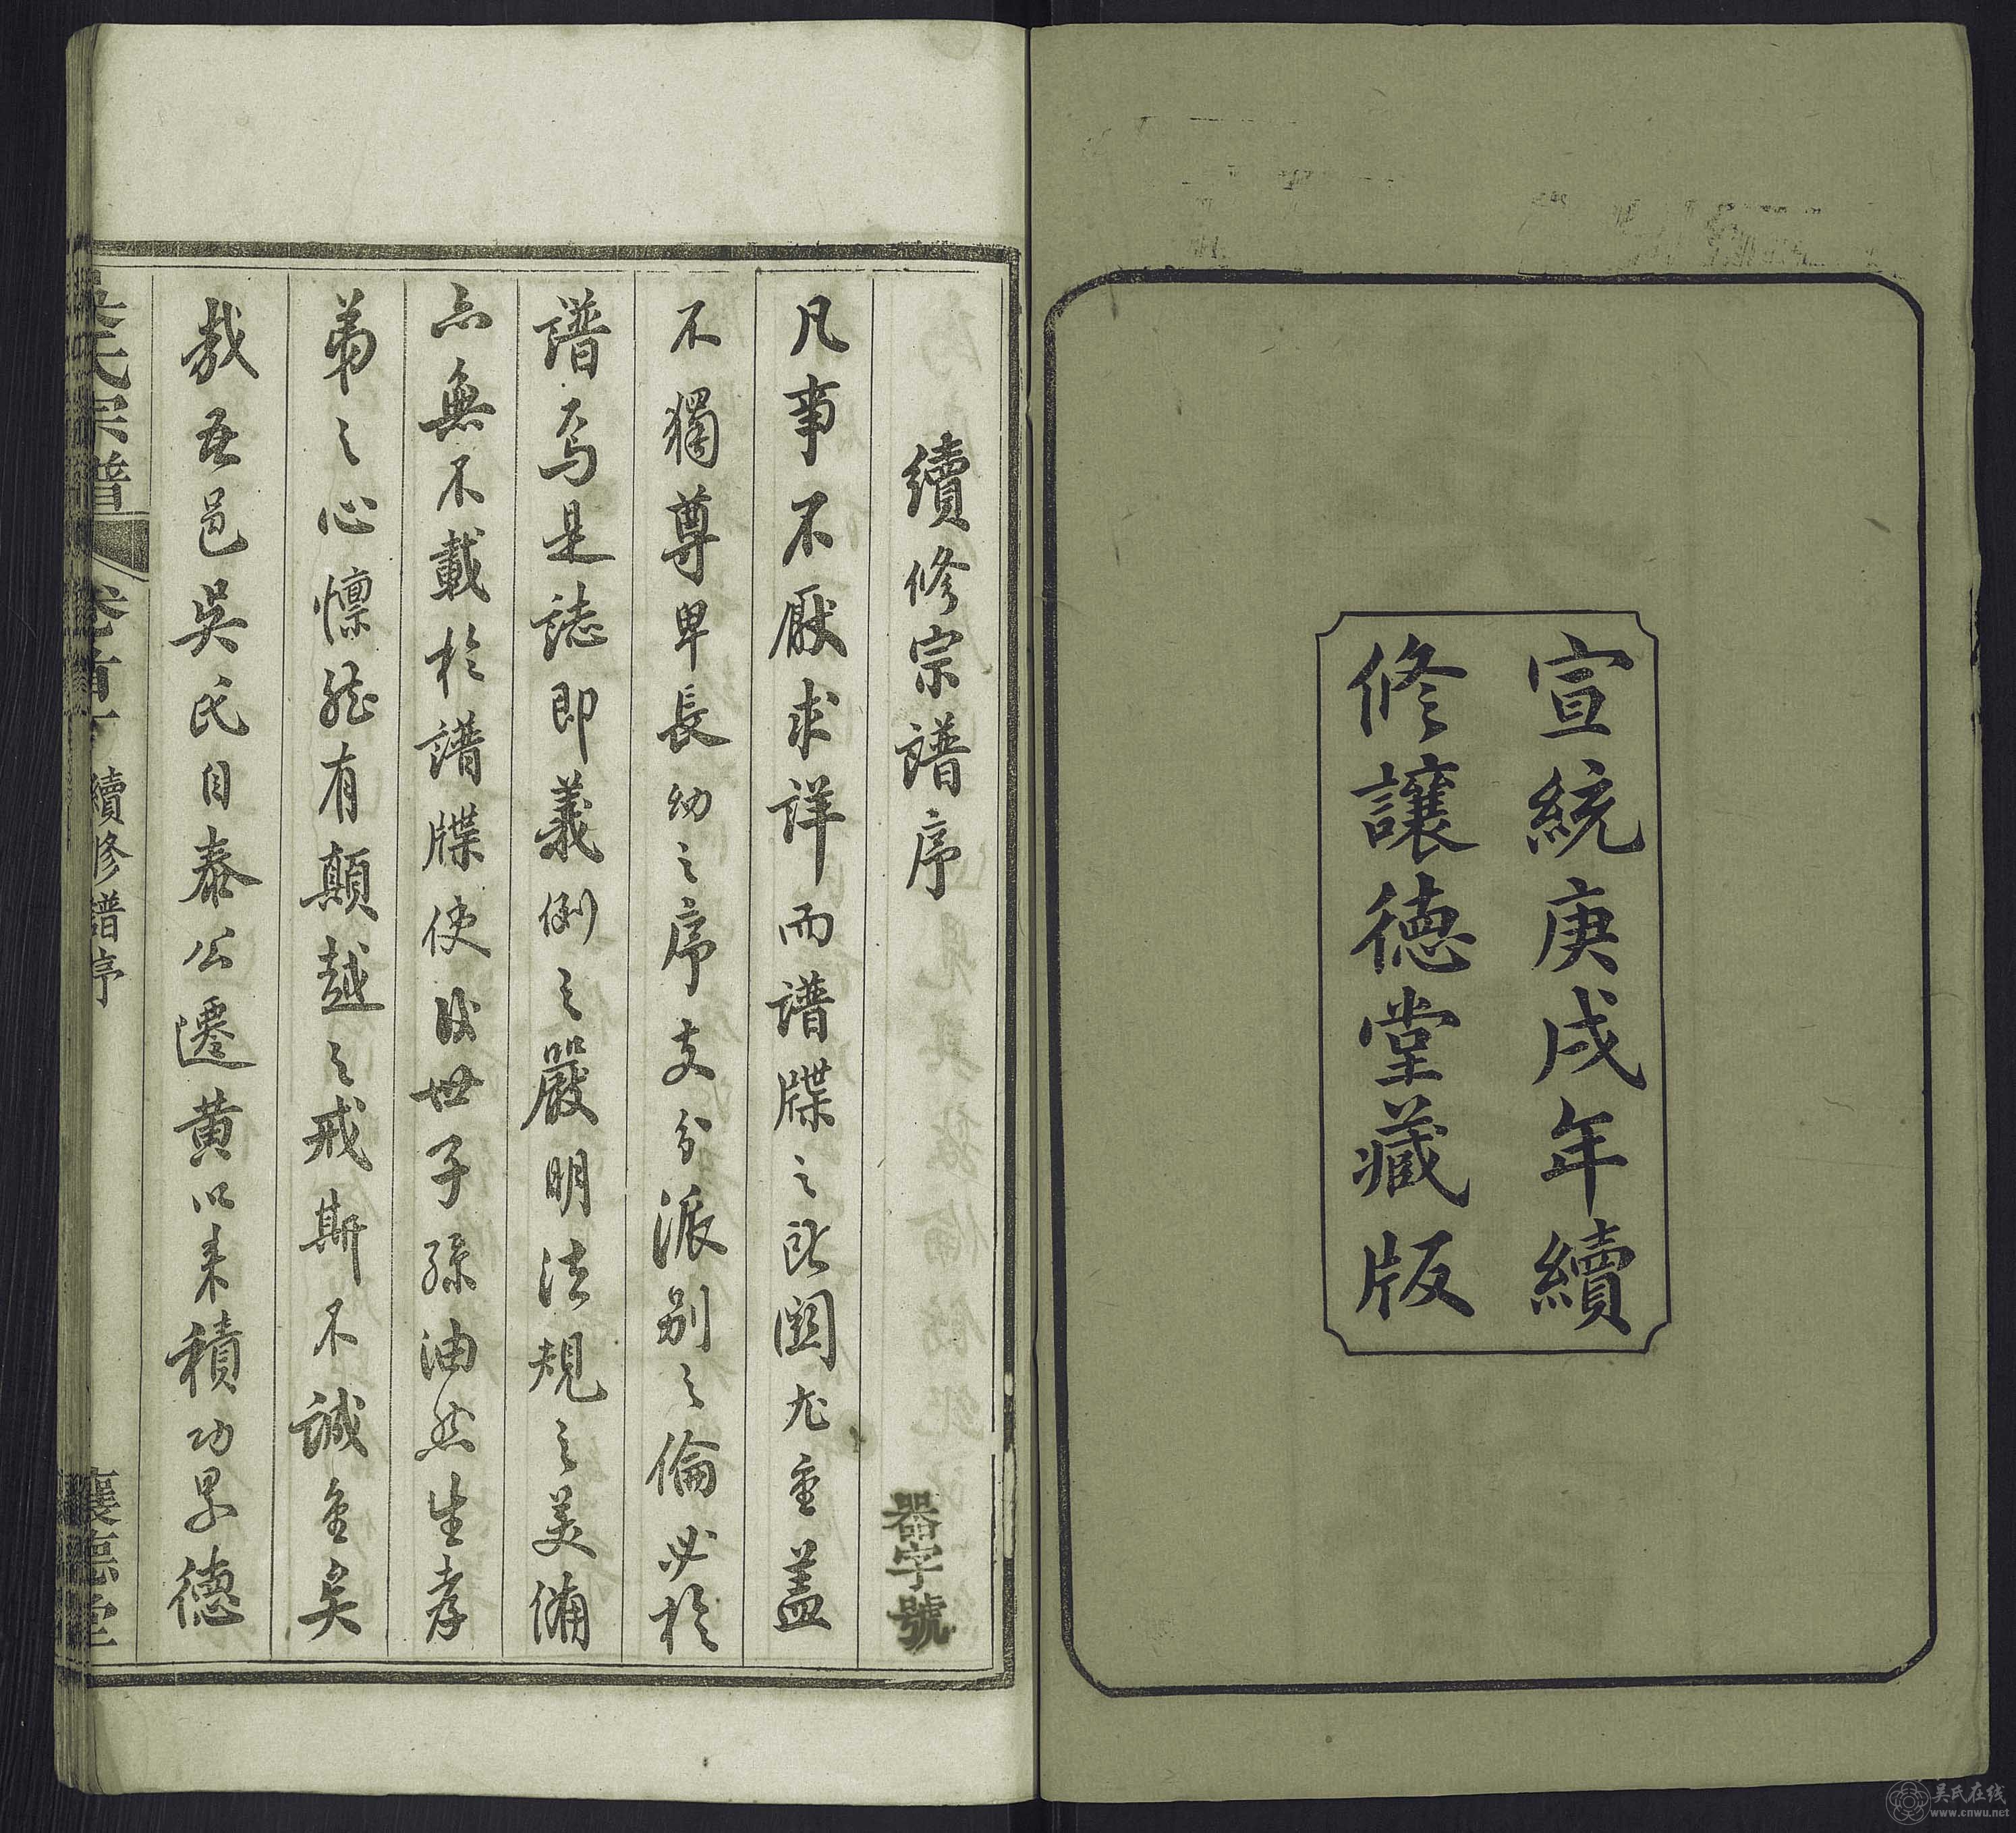 宣統庚戌年續
修讓德堂藏版
續修宗譜序
器字號
凡事不厭求詳而譜牒之所關尤重蓋
不獨尊卑長幼之序支分派別之倫必於
譜焉是誌即義例之嚴明法規之美備
亦無不載於譜牒使後世子孫油然生孝
弟之心懍然有顛越之戒斯不誠重矣
哉吾邑吳氏自泰公遷黄以来積功累德
吳氏宗譜
卷首下
續修譜序
讓德堂
吴氏在线
www.cnwu.net